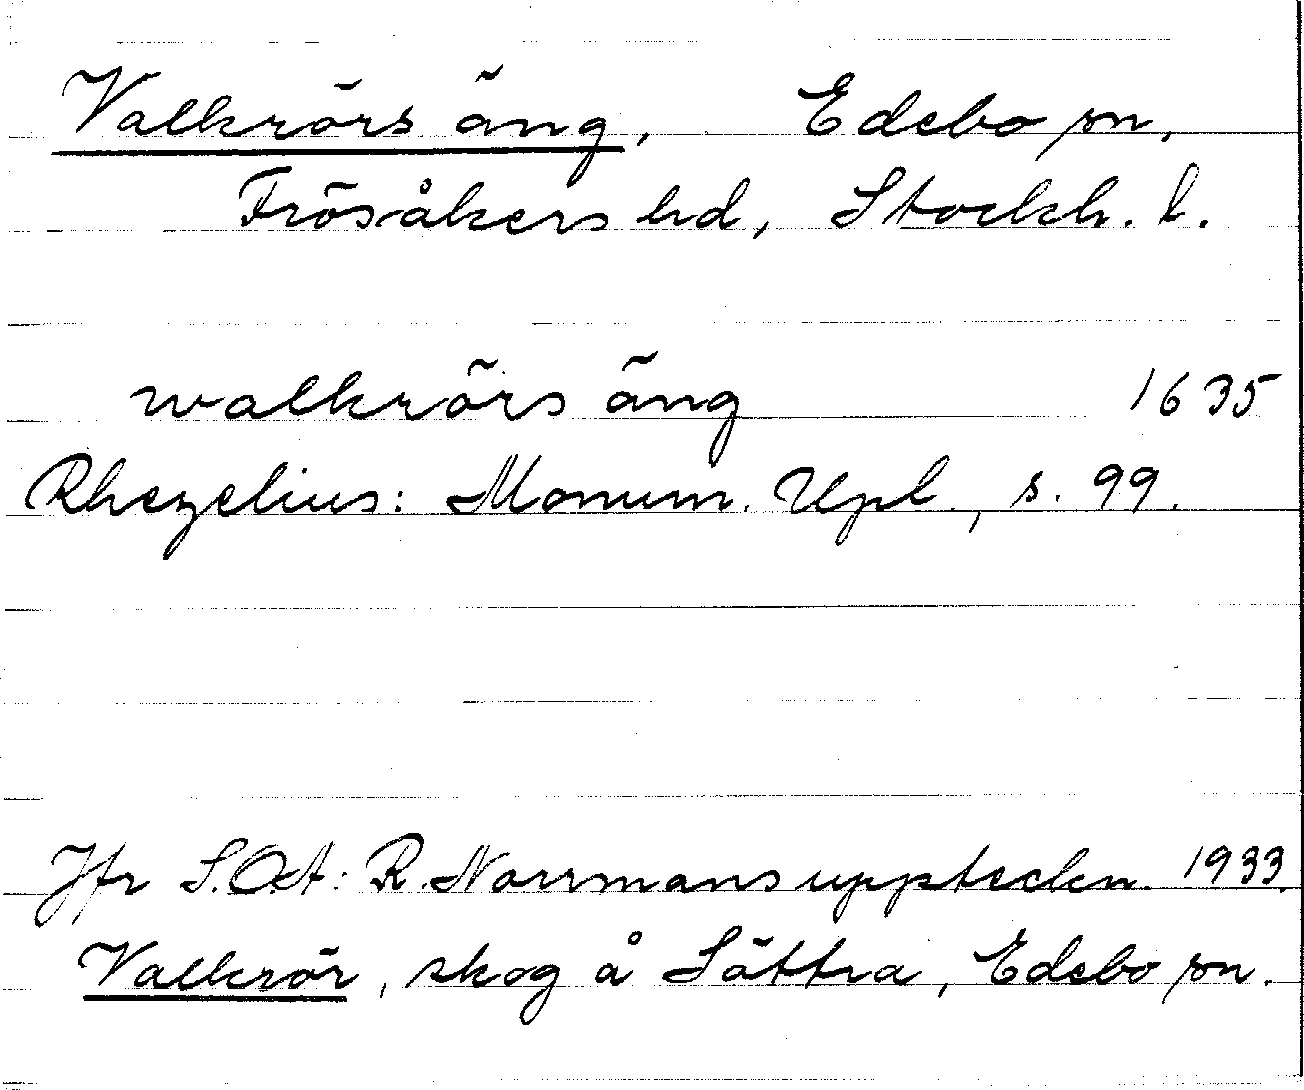 Valkrörs äng, Edebo sn,
Frösåkers hd, Stockh. l.
walkrörs äng 1635
Rhezelius: Monum. Upl., s. 99.
Jfr S.O.A: R. Norrmans uppteckn. 1933.
Valkrör, skog å Sättra, Edebo sn.